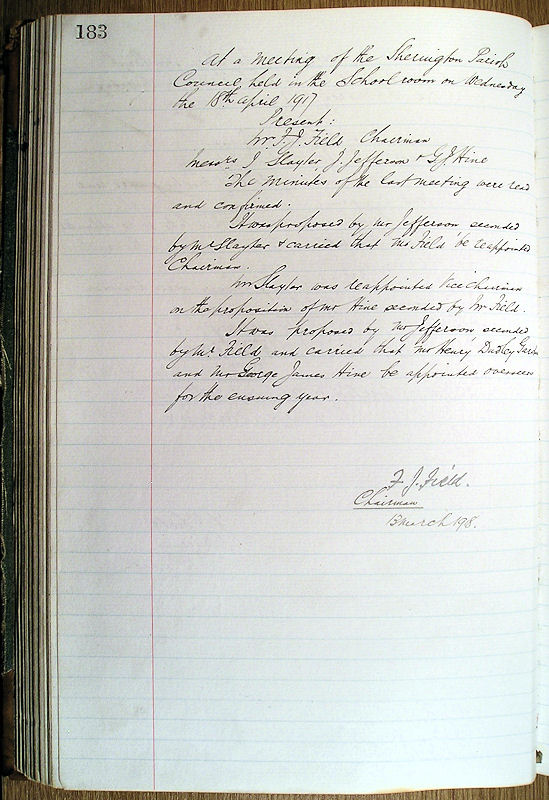 183
At a meeting of the Sherington Parish
Council held in the School room on Wednesday
the 18th April 1917
Present:
Mr F. J. Field Chairman
Messrs J Slayter, J. Jefferson & G J Hine
The minutes of the last meeting were read
and confirmed.
It was proposed by Mr Jefferson seconded
by Mr Slayter & carried that Mr Field be reappointed
Chairman.
Mr Slayter was reappointed Vice Chairman
on the proposition of Mr Hine seconded by Mr Field.
It was proposed by Mr Jefferson seconded
by Mr Field and carried that Mr Henry Dudley
and Mr George James Hine be appointed overseers
for the ensuing year.
F. J. Field.
Chairman
March 198.